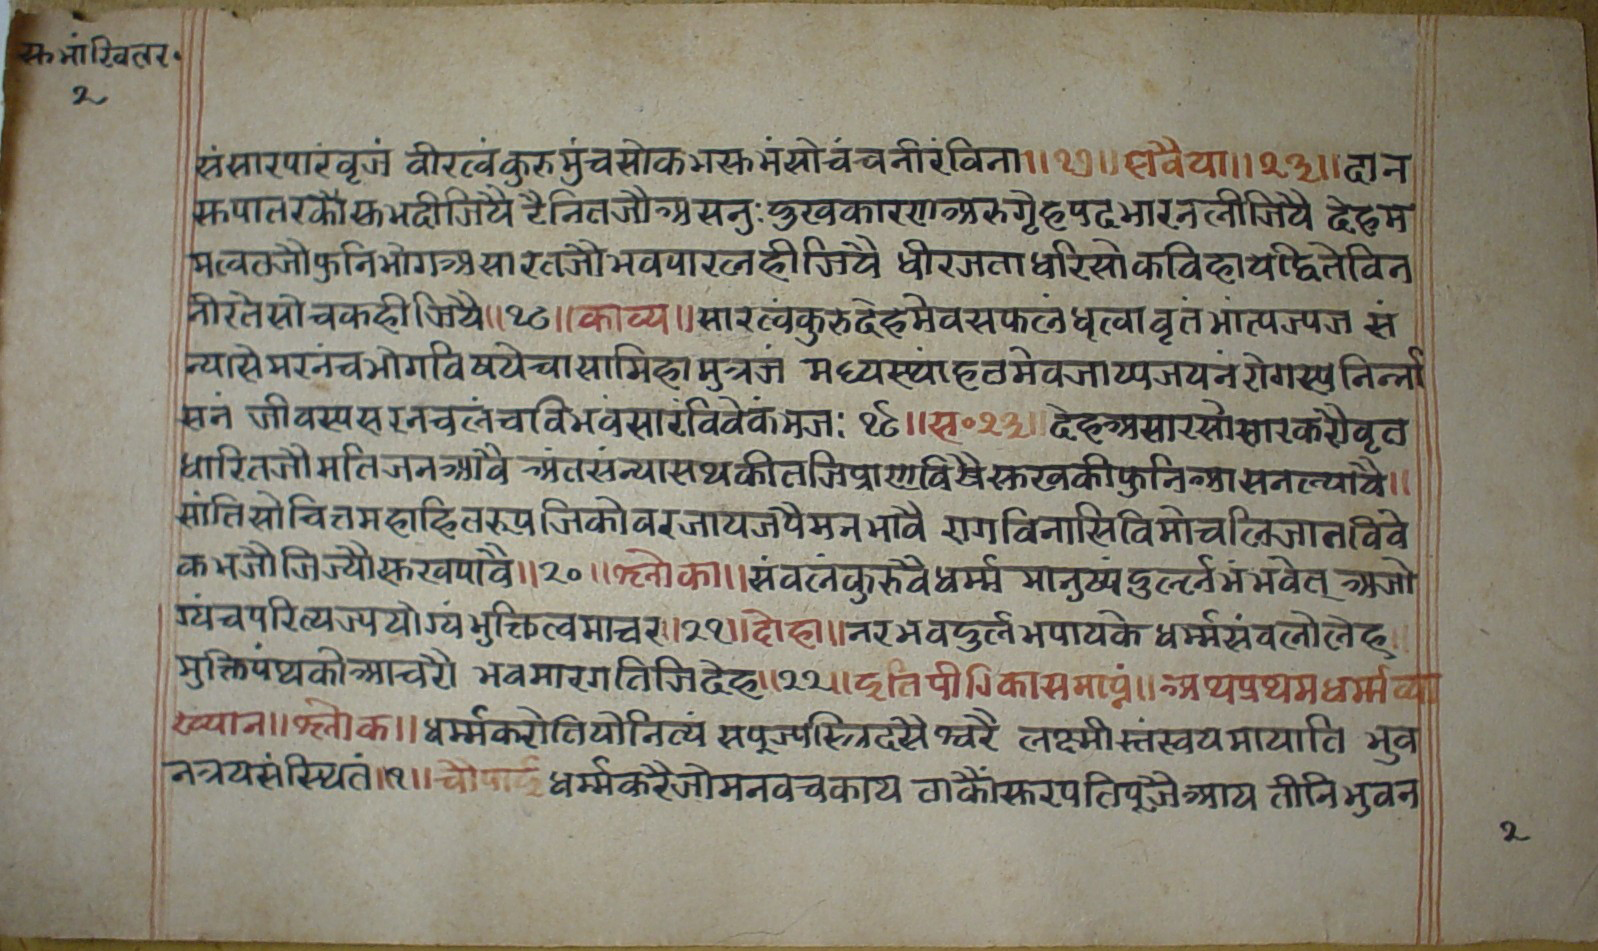 सुभाषितर॰
२
संसारपारंवृजं वीरत्वंकुरुमुंचसोकमसुभंसोचंचनीरंविना॥१७॥सवैया॥२३॥दान
सुपातरकौसुभदीजियै रैनितजौअसनुःदुखकारणअरुगृहपदभारनलीजियै देहम
मत्वतजौफुनिभोगअसारतजौभवपारलहीजियै धीरजताधरिसोकविहायहितेविन
नीरतेसोचकहीजियै॥१८॥काव्य॥सारत्वंकुरुदेहमेवसफलंधृत्वावृतंभांत्पज्पज सं
न्यासेमरनंचभोगविषयेचासामिहामुत्रजं मध्यस्थांहठमेवजाप्यजयनंरोगस्पनिर्न्ना
सनं जीवस्पसरनचलंचविभवंसारंविवेकंभजः १९॥स॰२३॥देहअसारसोसारकरौवृत
धारितजौमतिजनआवै अंतसंन्यासथकीतजिप्राणविषैसुखकीफुनिआसनल्यावै॥
सांतिसोचित्तमहाहितरुपजिकोवरजायजपैमनभावै रागविनासिविमोचलिजातविवे
कभजौजिज्यौसुखपावै॥२०॥श्लोका॥संवलंकुरुवैधर्म्म मानुष्यंदुर्ल्लभंभवेत् अजो
ग्यंचपरित्यज्पयोग्यंमुक्तित्वमाचर॥२१॥दोहा॥नरभवदुर्लभपायके धर्म्मसंवलोलेह
मुक्तिपंथकोआचरौ भवमारगतिजिदेह॥२२॥इतिपीठिकासमाप्तं॥अथप्रथमधर्म्मव्या
ख्यान॥श्लोक॥धर्म्मकरोतियोनित्यं सपूज्पस्त्रिदसेश्वरै लक्ष्मीस्तंस्वयमायाति भुव
नत्रयसंस्थितं॥१॥चौपाई धर्म्मकरैजोमनवचकाय ताकौंसुरपतिपूजैआय तीनिभुवन
२